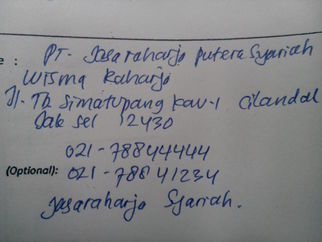 e :
PT. Jasaraharja putera Syariah
Wisma Raharja
Jl. Tb. Simatupang kav-1 Cilandak
Jak sel 12430
021-78844444
(Optional): 021-78841234
Jasaraharja Syariah.